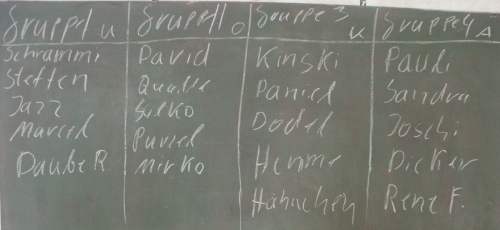 Gruppe 1 u Gruppe 11 o Gruppe 3 K Gruppe 4 A
Schrammi David Kinski Pauli
Steffen Qualle Daniel Sandra
Jazz Silko Dodel Joschi
Marcel Purzel Henne Dicker
Daube R. Mirko Hähnchen Rene F.